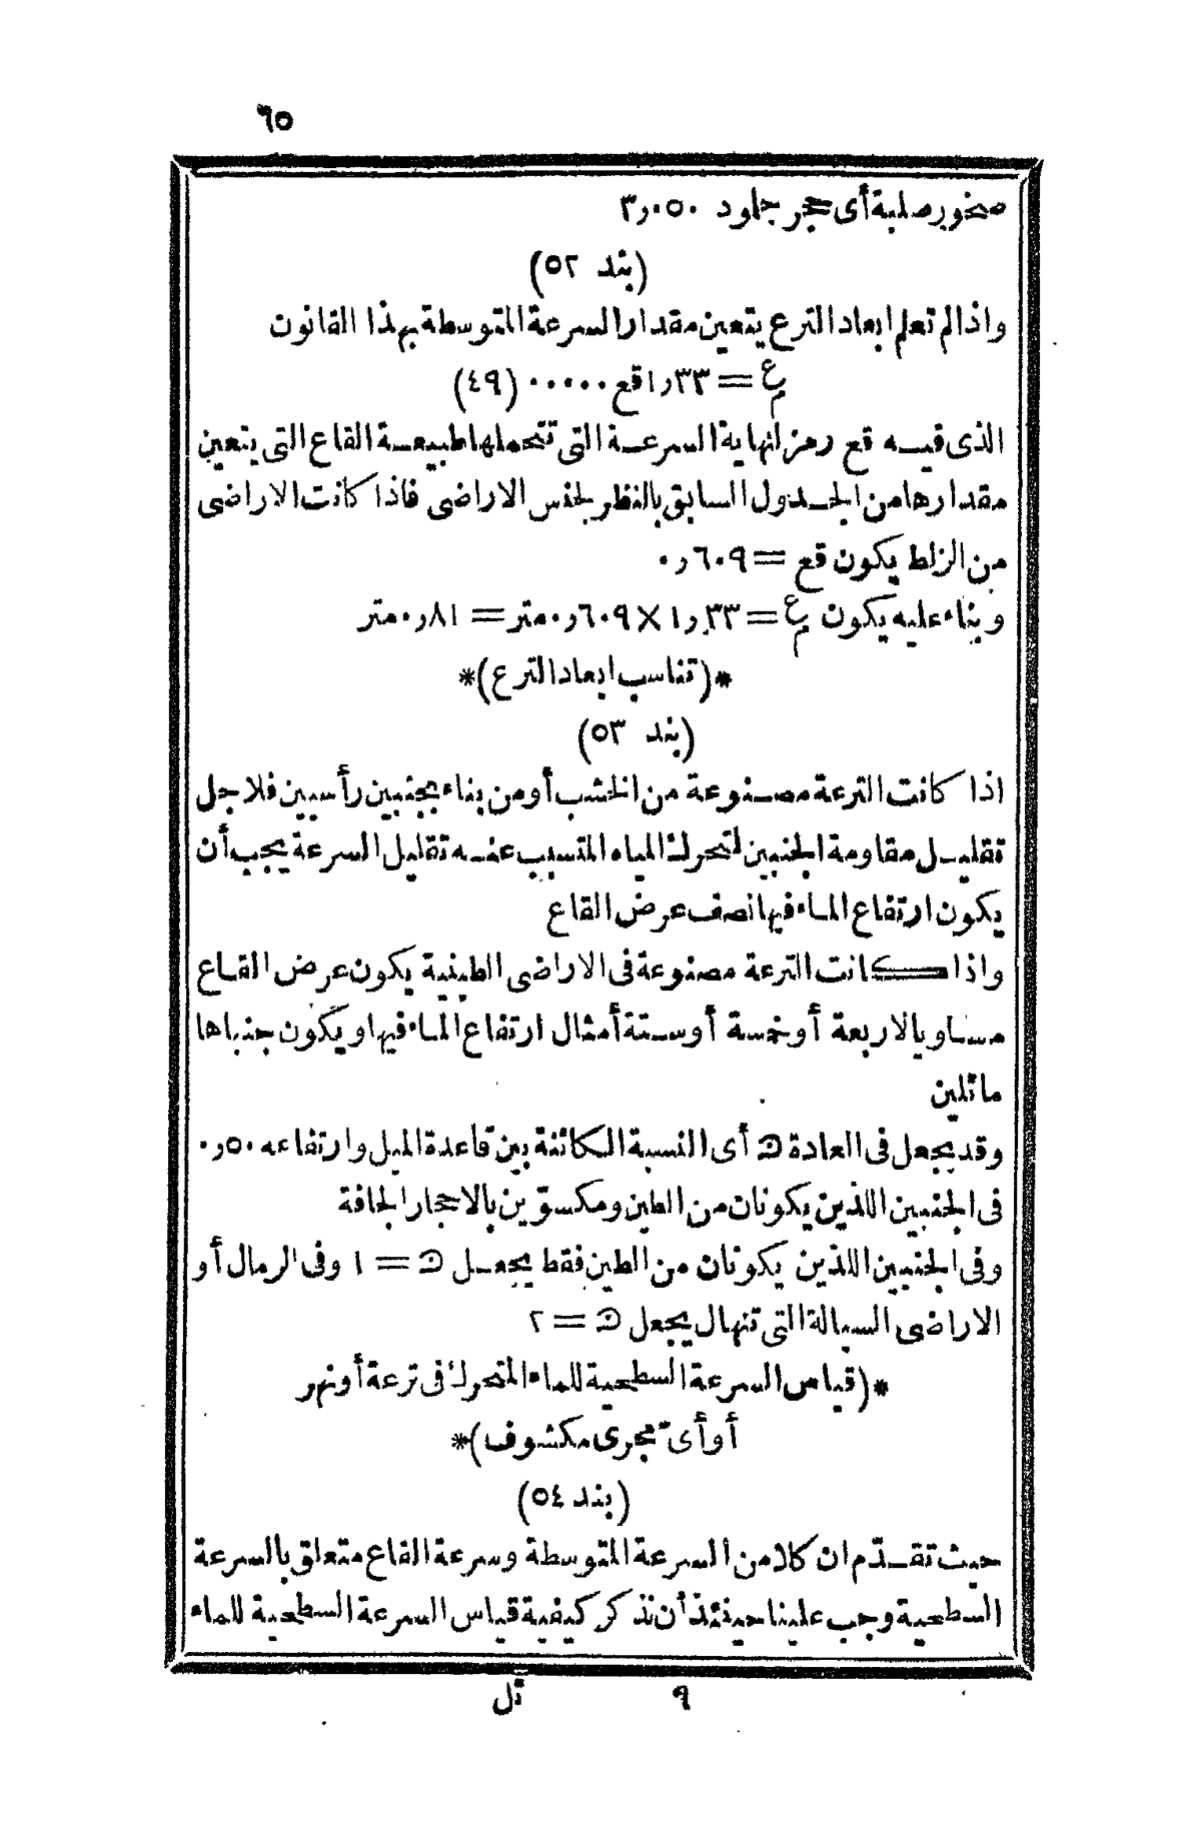 ٦٥
صخور صلبة أى حجر جلود ٣٫٠٥٠
(بند ٥٢)
واذا لم تعلم ابعاد الترع يتعين مقدار السرعة المتوسطة بهذا القانون
ع م = ١٫٣٣ قع ..... (٤٩)
الذى فيه قع رمز لنهاية السرعة التى تتحملها طبيعة القاع التى يتعين
مقدارها من الجدول السابق بالنظر لجنس الاراضى فاذا كانت الاراضى
من الزلط يكون قع = ٠٫٦٠٩
وبناء عليه يكون ع م = ١٫٣٣ × ٠٫٦٠٩ متر = ٠٫٨١ متر
*(تناسب ابعاد الترع)*
(بند ٥٣)
اذا كانت الترعة مصنوعة من الخشب أو من بناء بجنبين رأسيين فلاجل
تقليل مقاومة الجنبين لتحرك المياه المتسبب عنه تقليل السرعة يجب أن
يكون ارتفاع الماء فيها نصف عرض القاع
واذا كانت الترعة مصنوعة فى الاراضى الطينية يكون عرض القاع
مساويا لاربعة أو خمسة أو ستة أمثال ارتفاع الماء فيها ويكون جنباها
مائلين
وقد يجعل فى العادة ن أى النسبة الكائنة بين قاعدة الميل وارتفاعه ٠٫٥٠
فى الجنبين اللذين يكونان من الطين ومكسوّين بالاحجار الجافة
وفى الجنبين اللذين يكونان من الطين فقط يجعل ن = ١ وفى الرمال أو
الاراضى السيالة التى تنهال يجعل ن = ٢
*(قياس السرعة السطحية للماء المتحرك فى ترعة أو نهر
أو أىّ مجرى مكشوف)*
(بند ٥٤)
حيث تقدّم ان كلا من السرعة المتوسطة وسرعة القاع متعلق بالسرعة
السطحية وجب علينا حينئذ أن نذكر كيفية قياس السرعة السطحية للماء
٩ تل